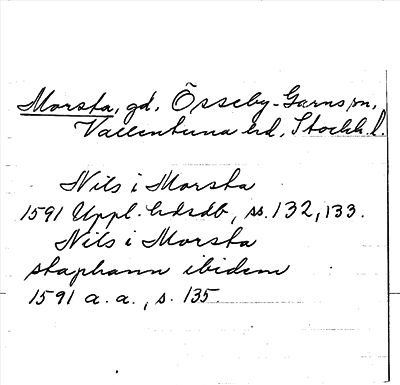 Morsta, gd, Össeby-Garns sn,
Vallentuna hd, Stockh. l.
Nils i Morsta
1591 Uppl. hdsdb, ss. 132, 133.
Nils i Morsta
staphann ibidem
1591 a. a., s. 135.